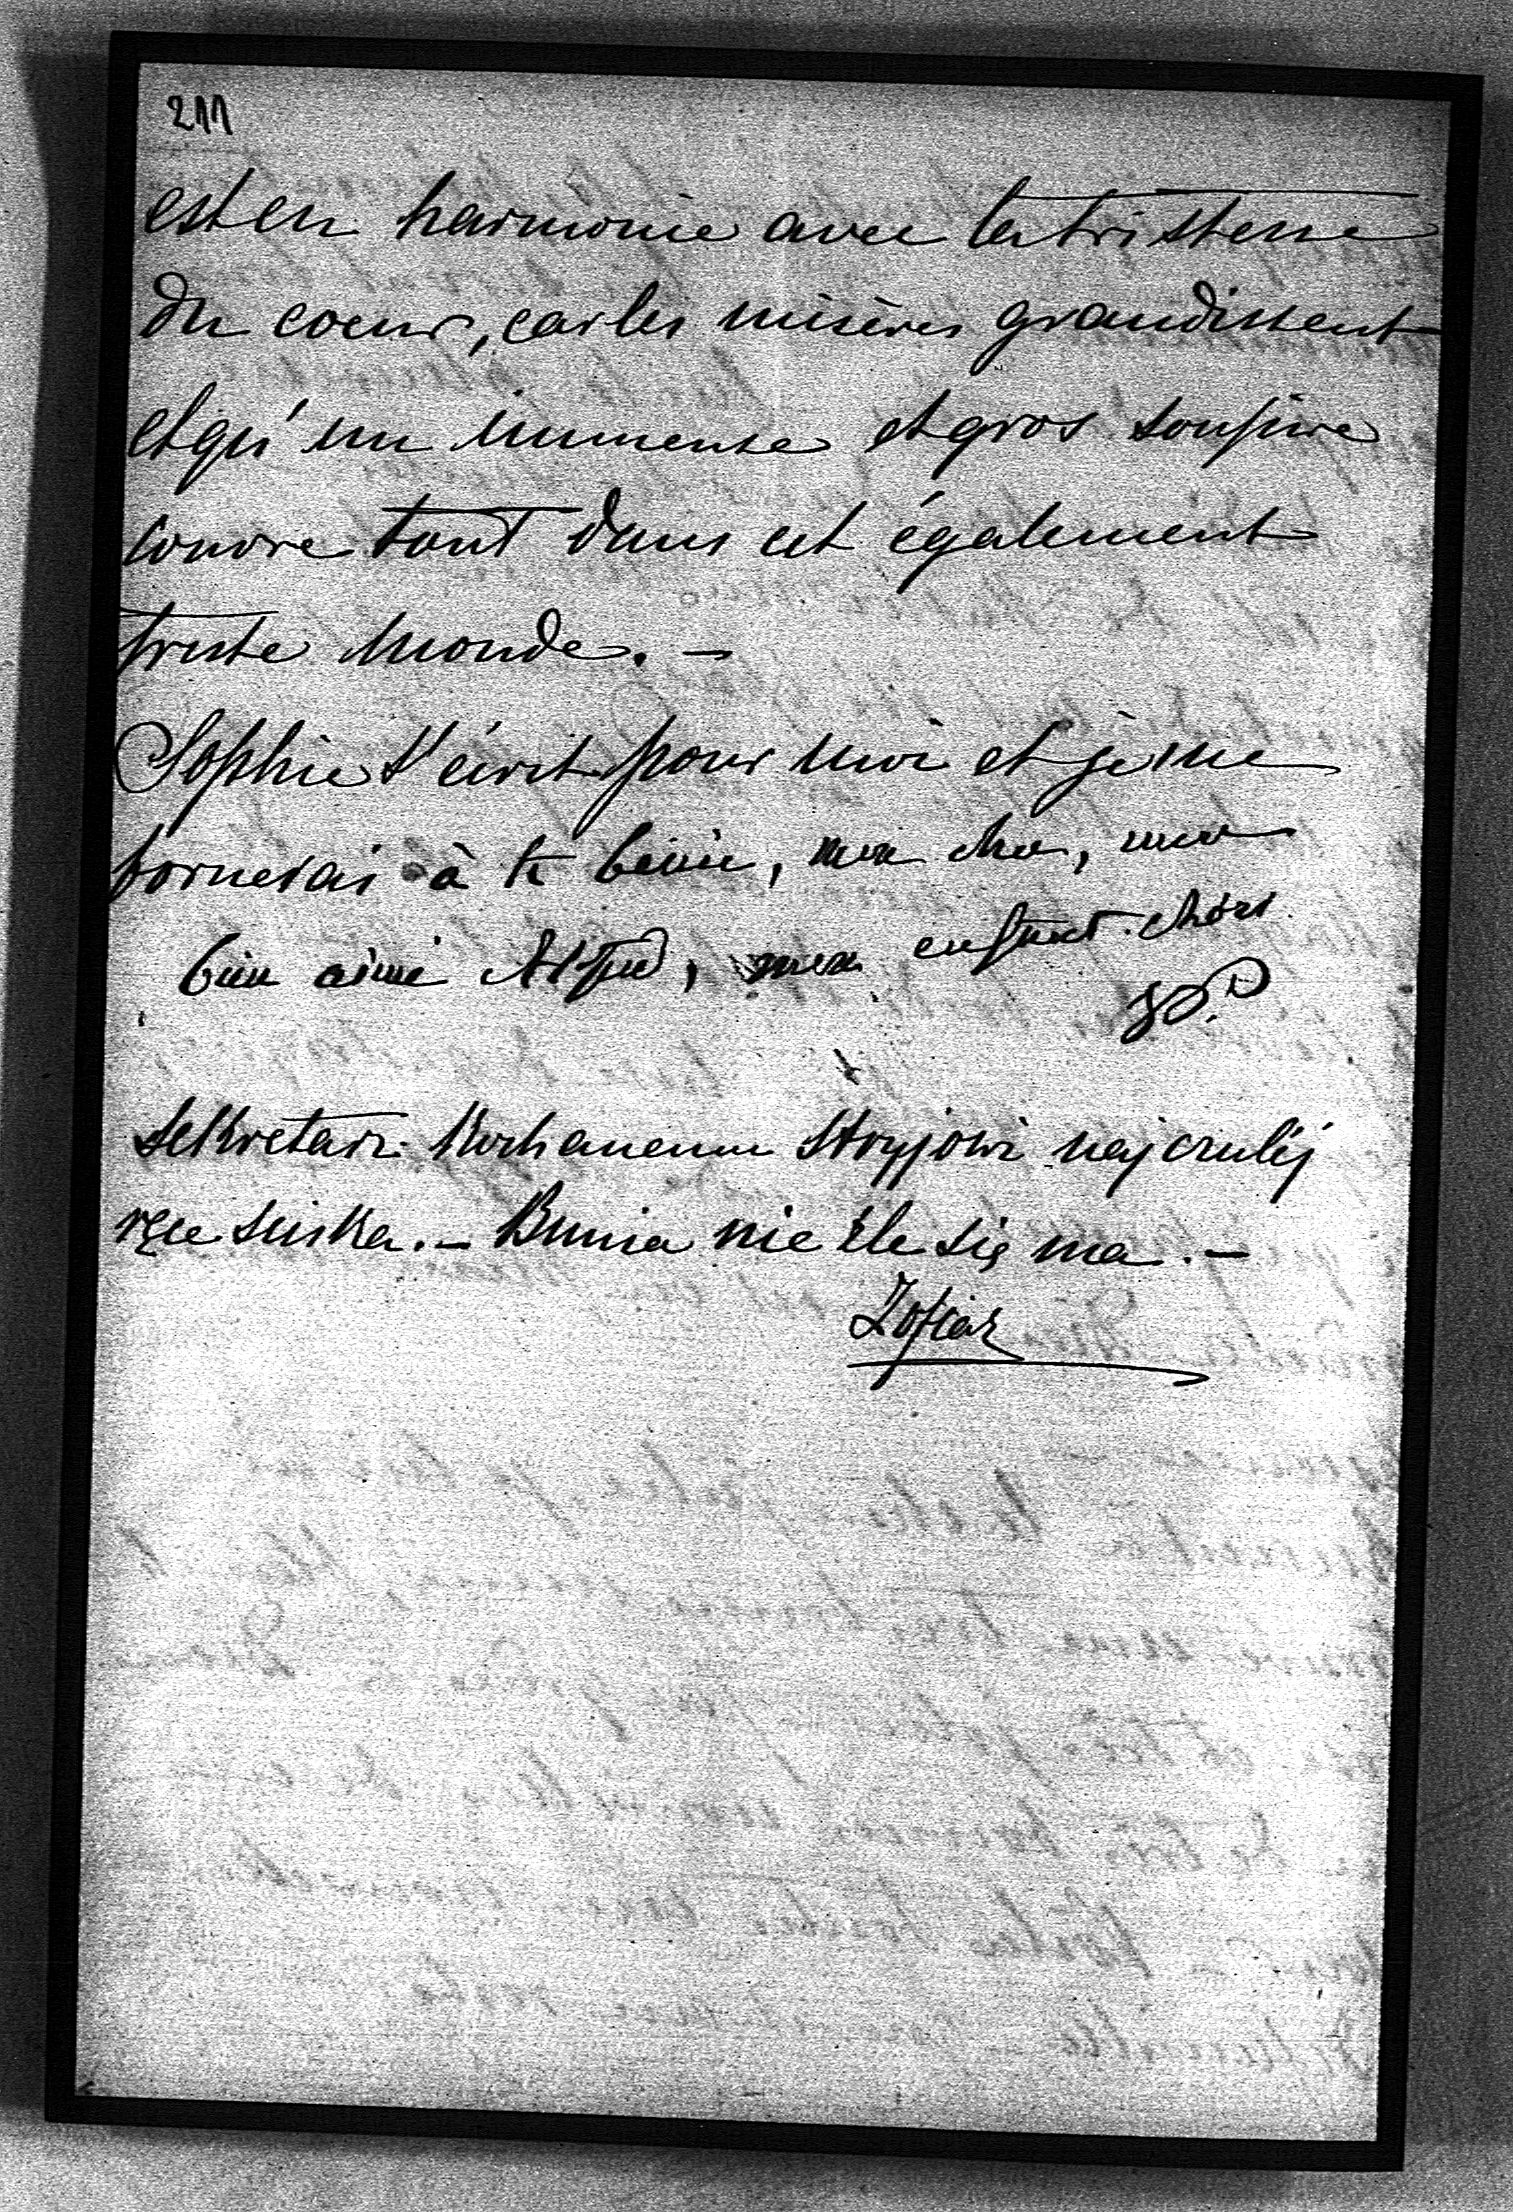 211
est en harmonie avec la tristesse
du coeur, car les misères grandissent
et qu'un immense et gros soupire
couvre tout dans cet également
triste monde. —
Sophie t'écrit pour moi et je me
bornerai à te bénir, mon cher, mon
bien aimé Alfred, mon enfant chéri
Sekretarz Kochanemu Stryjowi najczuléj
ręce sciska. — Bunia nie źle się ma. —
Zofia